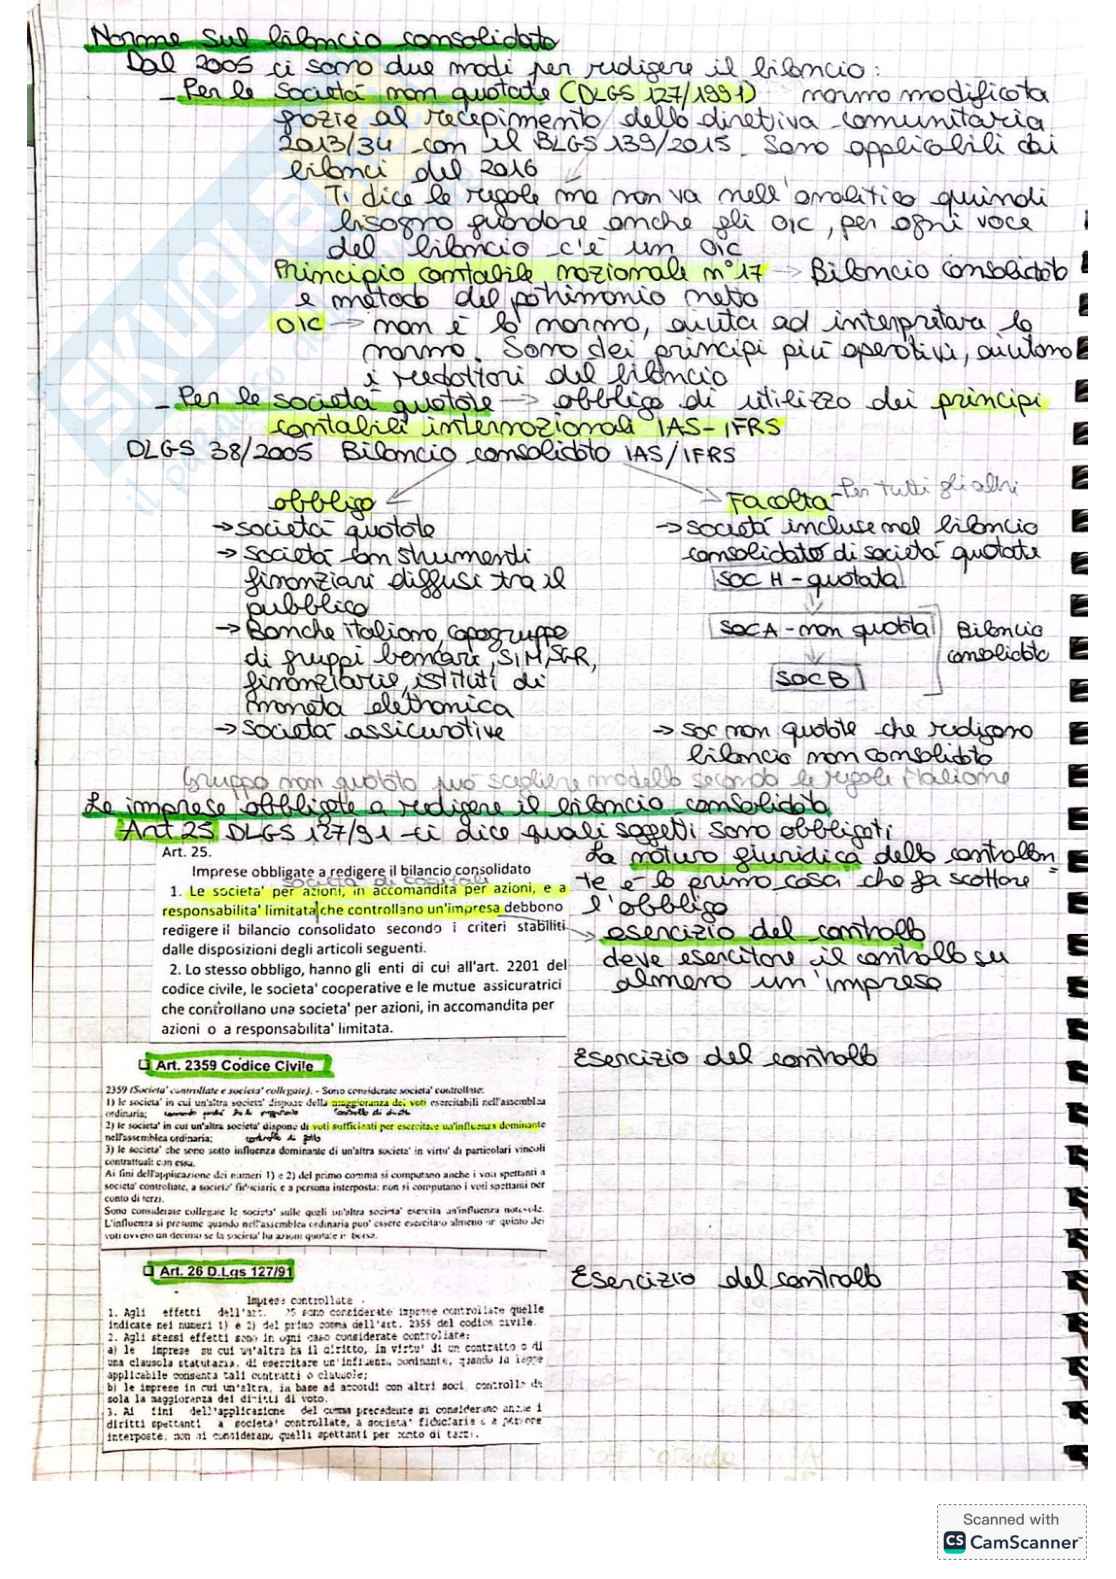 Norme sul bilancio consolidato
Dal 2005 ci sono due modi per redigere il bilancio:
- Per le società non quotate (DLGS 127/1991) norma modificata
grazie al recepimento della direttiva comunitaria
2013/34 con il DLGS 139/2015. Sono applicabili dai
bilanci del 2016
Ti dice le regole ma non va nell'analitico quindi
bisogna guardare anche gli OIC, per ogni voce
del bilancio c'è un OIC
Principio contabile nazionale n°17 → Bilancio consolidato
e metodo del patrimonio netto
OIC → non è la norma, aiuta ad interpretare la
norma. Sono dei principi più operativi, aiutano
i redattori del bilancio
- Per le società quotate → obbligo di utilizzo dei principi
contabili internazionali IAS-IFRS
DLGS 38/2005 Bilancio consolidato IAS/IFRS
obbligo
→ società quotate
→ società con strumenti
finanziari diffusi tra il
pubblico
→ Banche italiane, capogruppe
di gruppi bancari, SIM, SGR,
finanziarie, istituti di
moneta elettronica
→ società assicurative
Facoltà - Per tutti gli altri
→ società incluse nel bilancio
consolidato di società quotate
SOC H - quotata
SOC A - non quotata
SOC B
Bilancio
consolidato
→ soc non quotate che redigono
bilancio non consolidato
Gruppo non quotato può scegliere modello secondo le regole italiane
Le imprese obbligate a redigere il bilancio consolidato
Art 25 DLGS 127/91 ci dice quali soggetti sono obbligati
Art. 25.
Imprese obbligate a redigere il bilancio consolidato
società di capitali
1. Le societa' per azioni, in accomandita per azioni, e a
responsabilita' limitata che controllano un'impresa debbono
redigere il bilancio consolidato secondo i criteri stabiliti
dalle disposizioni degli articoli seguenti.
2. Lo stesso obbligo, hanno gli enti di cui all'art. 2201 del
codice civile, le societa' cooperative e le mutue assicuratrici
che controllano una societa' per azioni, in accomandita per
azioni o a responsabilita' limitata.
La natura giuridica della controllan
te è la prima cosa che fa scattare
l'obbligo
esercizio del controllo
deve esercitare il controllo su
almeno un'impresa
Art. 2359 Codice Civile
Esercizio del controllo
2359 (Societa' controllate e societa' collegate). - Sono considerate societa' controllate:
1) le societa' in cui un'altra societa' dispone della maggioranza dei voti esercitabili nell'assemblea
ordinaria; controllo di diritto
2) le societa' in cui un'altra societa' dispone di voti sufficienti per esercitare un'influenza dominante
nell'assemblea ordinaria; controllo di fatto
3) le societa' che sono sotto influenza dominante di un'altra societa' in virtu' di particolari vincoli
contrattuali con essa.
Ai fini dell'applicazione dei numeri 1) e 2) del primo comma si computano anche i voti spettanti a
societa' controllate, a societa' fiduciarie e a persona interposta: non si computano i voti spettanti per
conto di terzi.
Sono considerate collegate le societa' sulle quali un'altra societa' esercita un'influenza notevole.
L'influenza si presume quando nell'assemblea ordinaria puo' essere esercitato almeno un quinto dei
voti ovvero un decimo se la societa' ha azioni quotate in borsa.
Art. 26 D.Lgs 127/91
Esercizio del controllo
Imprese controllate
1. Agli effetti dell'art. 25 sono considerate imprese controllate quelle
indicate nei numeri 1) e 2) del primo comma dell'art. 2359 del codice civile.
2. Agli stessi effetti sono in ogni caso considerate controllate:
a) le imprese su cui un'altra ha il diritto, in virtu' di un contratto o di
una clausola statutaria, di esercitare un'influenza dominante, quando la legge
applicabile consenta tali contratti o clausole;
b) le imprese in cui un'altra, in base ad accordi con altri soci, controlla da
sola la maggioranza dei diritti di voto.
3. Ai fini dell'applicazione del comma precedente si considerano anche i
diritti spettanti a societa' controllate, a societa' fiduciarie e a persone
interposte; non si considerano quelli spettanti per conto di terzi.
Scanned with
CS CamScanner